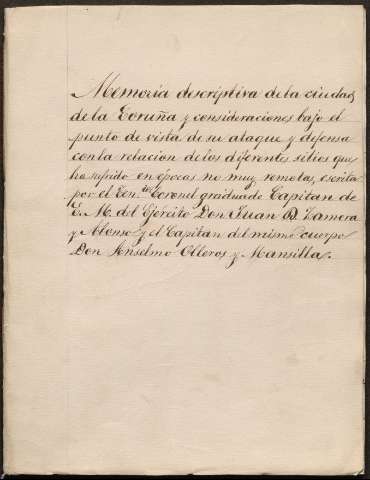 Memoria descriptiva de la ciudad
de la Coruña y consideraciones bajo el
punto de vista de su ataque y defensa
con la relacion de los diferentes sitios que
ha sufrido en épocas no muy remotas, escrita
por el Ten.te Coronel graduado Capitan de
E. M. del Ejército Don Juan B. Zamora
y Alonso y el Capitan del mismo cuerpo
Don Anselmo Olleros y Mansilla.